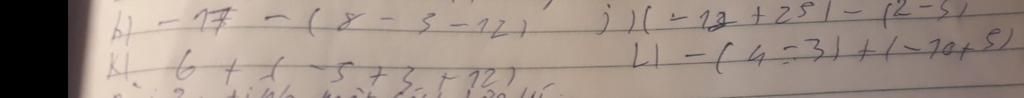 b) -17 - (8 - 3 - 12)
j) (-12 + 25) - (2-5)
k) 6 + (-5 + 3 + 12)
L) -(4-3) + (-10+5)